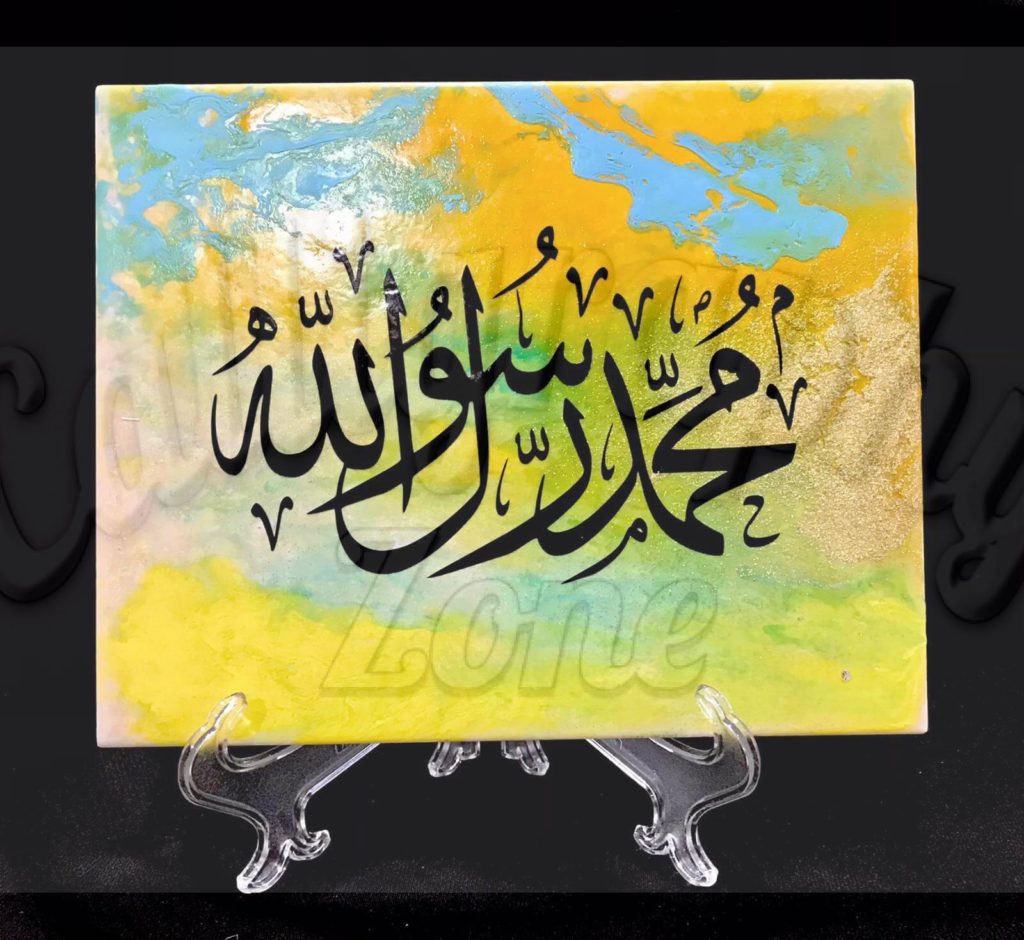 مُحَمَّد رَّسُوْلُ الله
Calligraphy
Zone